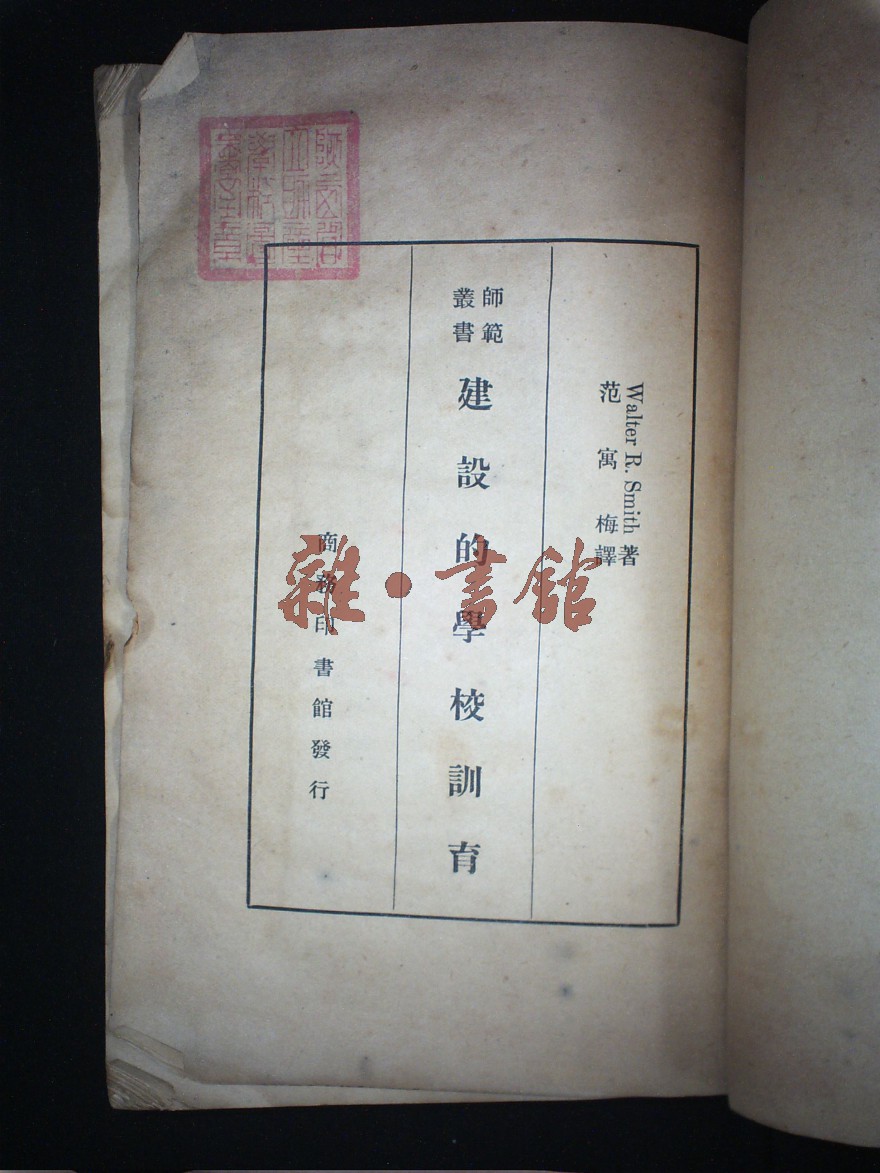 Walter R. Smith 著
范寓梅譯
師範
叢書
建設的學校訓育
商務印書館發行
雜·書館